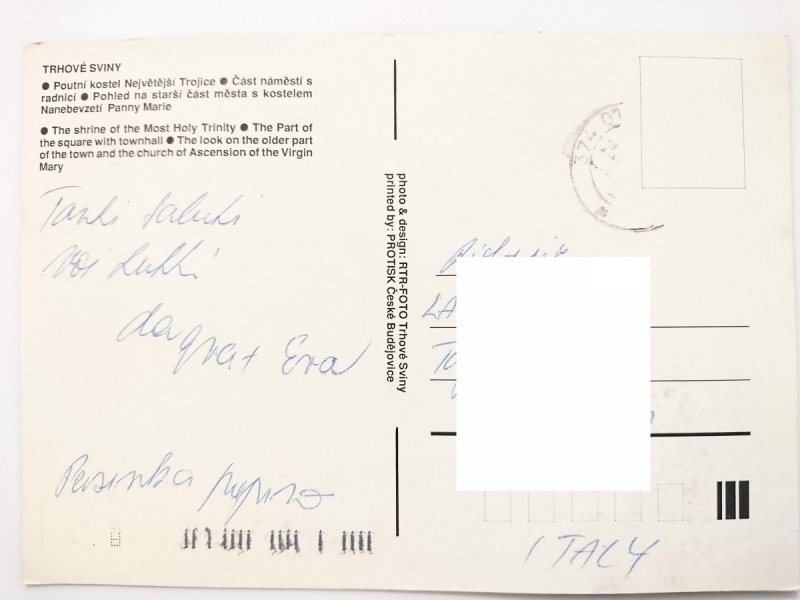 TRHOVÉ SVINY
● Poutní kostel Největější Trojice ● Část náměstí s
radnicí ● Pohled na starší část města s kostelem
Nanebevzetí Panny Marie
● The shrine of the Most Holy Trinity ● The Part of
the square with townhall ● The look on the older part
of the town and the church of Ascension of the Virgin
Mary
Tanti saluti
da
Eva
photo & design: RTR-FOTO Trhové Sviny
printed by: PROTISK České Budějovice
374 01
LA
ITALY